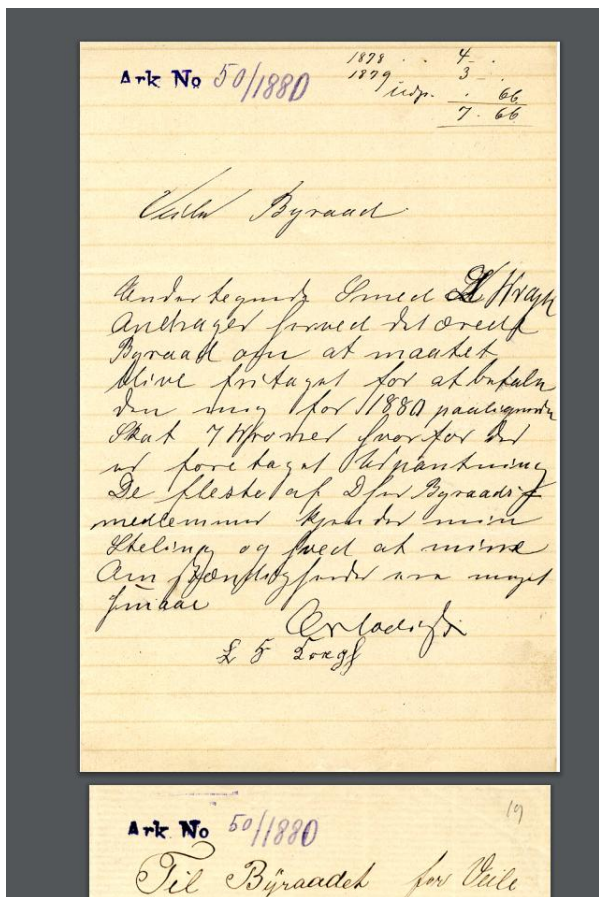 Ark No 50/1880
1878 . . 4 .
1879 3 .
Udp. . 66
7. 66
Veile Byraad
Undertegnede Smed
Andrager herved det ærede
Byraad om at maatet
blive fritaget for at betale
den mig for 1880 paalignede
Skat 7 Kroner hvorfor der
er foretaget Udpantning
De fleste af Dhrr Byraads
medlemmer kjender min
Steling og hved at mine
Omstændigheder ere meget
smaae
Ærbødigst
Ark No 50/1880
19
Til Byraadet for Veile